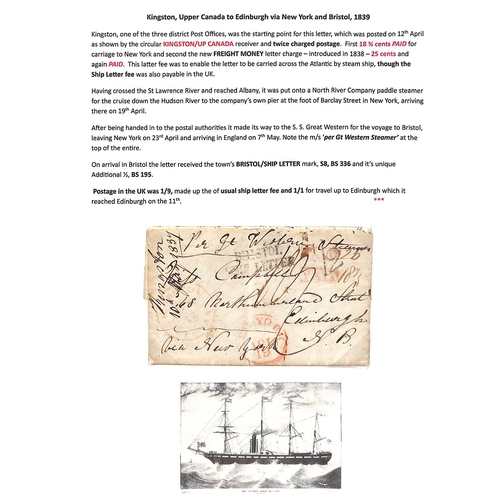 Kingston, Upper Canada to Edinburgh via New York and Bristol, 1839
Kingston, one of the three district Post Offices, was the starting point for this letter, which was posted on 12th April
as shown by the circular KINGSTON/UP CANADA receiver and twice charged postage. First 18 ¾ cents PAID for
carriage to New York and second the new FREIGHT MONEY letter charge – introduced in 1838 – 25 cents and
again PAID. This latter fee was to enable the letter to be carried across the Atlantic by steam ship, though the
Ship Letter fee was also payable in the UK.
Having crossed the St Lawrence River and reached Albany, it was put onto a North River Company paddle steamer
for the cruise down the Hudson River to the company's own pier at the foot of Barclay Street in New York, arriving
there on 19th April.
After being handed in to the postal authorities it made its way to the S. S. Great Western for the voyage to Bristol,
leaving New York on 23rd April and arriving in England on 7th May. Note the m/s 'per Gt Western Steamer' at the
top of the entire.
On arrival in Bristol the letter received the town's BRISTOL/SHIP LETTER mark, S8, BS 336 and it's unique
Additional ½, BS 195.
Postage in the UK was 1/9, made up the of usual ship letter fee and 1/1 for travel up to Edinburgh which it
reached Edinburgh on the 11th.
***
Per Gt Western Steamer
BRISTOL
SHIP LETTER
Campbell
48 Northumberland Street
Edinburgh
N.B.
via New York